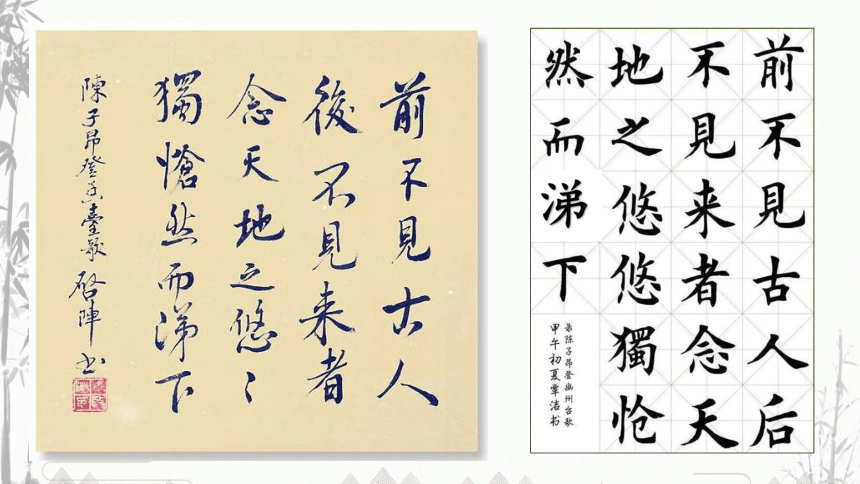 前不見古人
後不見来者
念天地之悠〻
獨愴然而涕下
陳子昂登幽臺歌 启陣书
前不見古人后
不見来者念天
地之悠悠獨怆
然而涕下
陈子昂登幽州台歌
甲午初夏覃洁书